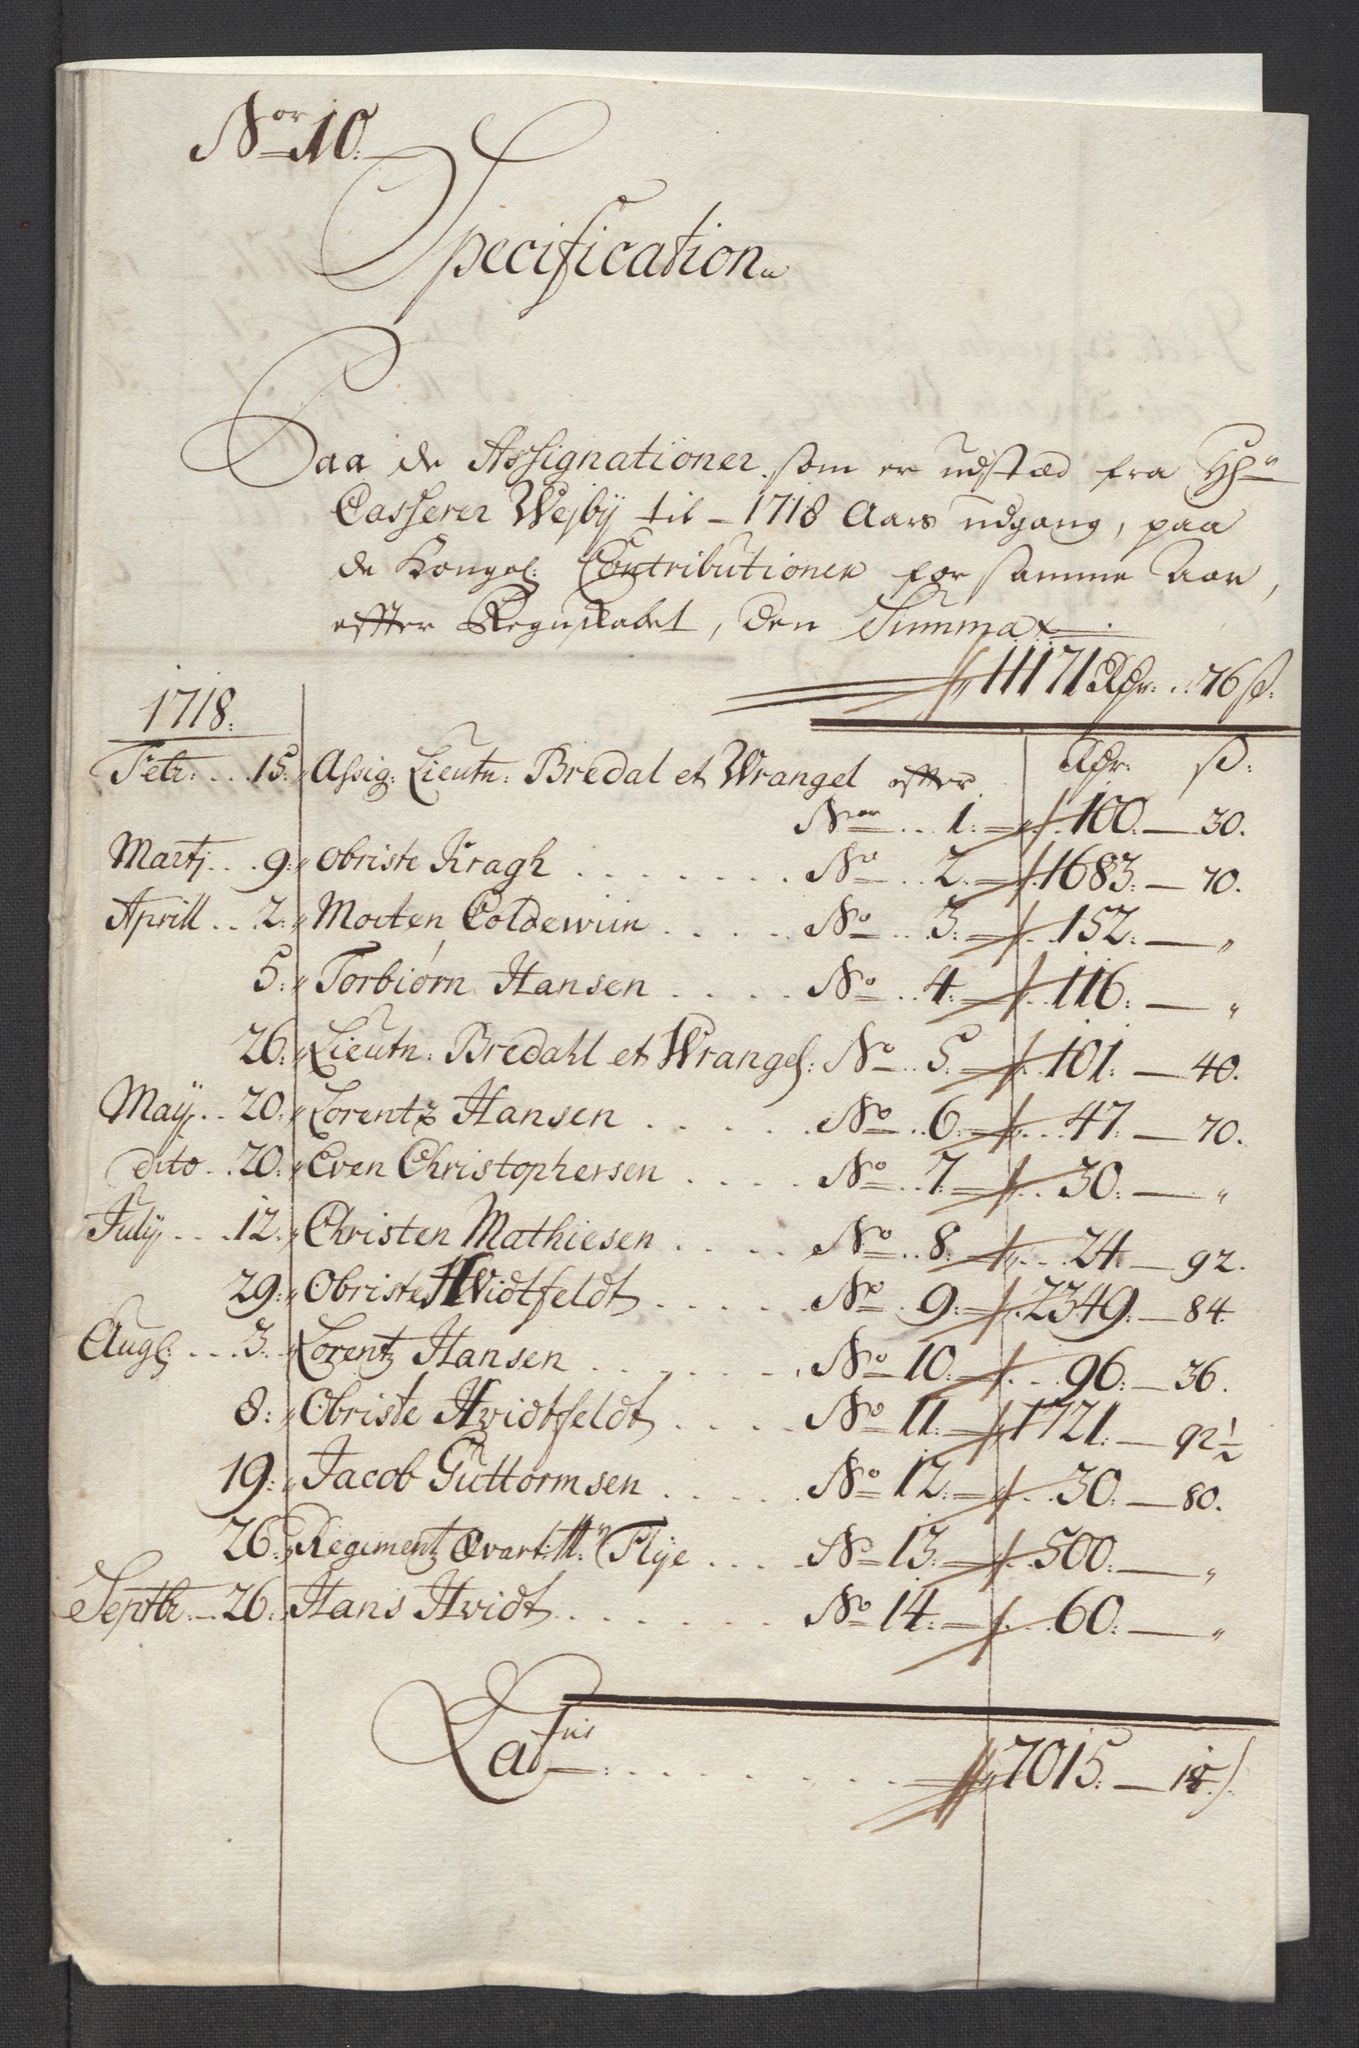 Nor 10.
Specification
Paa de Assignationer som er udstæd fra Hr
Casserer Wejbÿ til 1718 Aars udgang, paa
de Kongel: Contributioner for samme Aar,
effter Regnskabet, den Summa
11171 Rdr: 76 ß:
1718:
Rdr: ß:
Febr: 15: Assig: Lieutn: Bredal et Wrangel effter
Nor 1: 100: — 30.
Martj 9: Obriste Kragh No 2: 1683: — 70.
Aprill 2: Morten Coldewiin No 3: 152: — "
5: Torbiørn Hansen No 4: 116: — "
26: Lieutn: Bredahl et Wrangel: No 5: 101: — 40.
Maÿ 20: Lorentz Hansen No 6: 47: — 70.
dito 20: Even Christophersen No 7: 30: — "
Julÿ 12: Christen Mathiesen No 8: 24: — 92.
29: Obriste Hvidtfeldt No 9: 2349: — 84.
Aug: 3: Lorentz Hansen No 10: 96: — 36.
8: Obriste Hvidtfeldt No 11: 1721: — 92½
19: Jacob Guttormsen No 12: 30: — 80.
26: Regiment Qvart: Mr Flÿe No 13: 500: — "
Septbr: 26: Hans Hvidt No 14: 60: — "
Latus: 7015: — 18